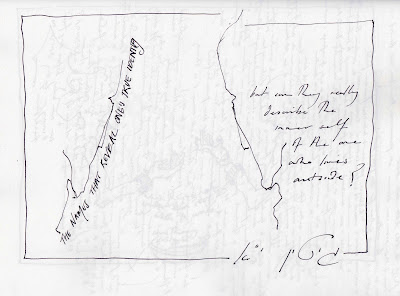 THE NAMES THAT REVEAL ONE'S TRUE IDENTITY
but can they really
describe the
inner self
of the one
who lives
outside?